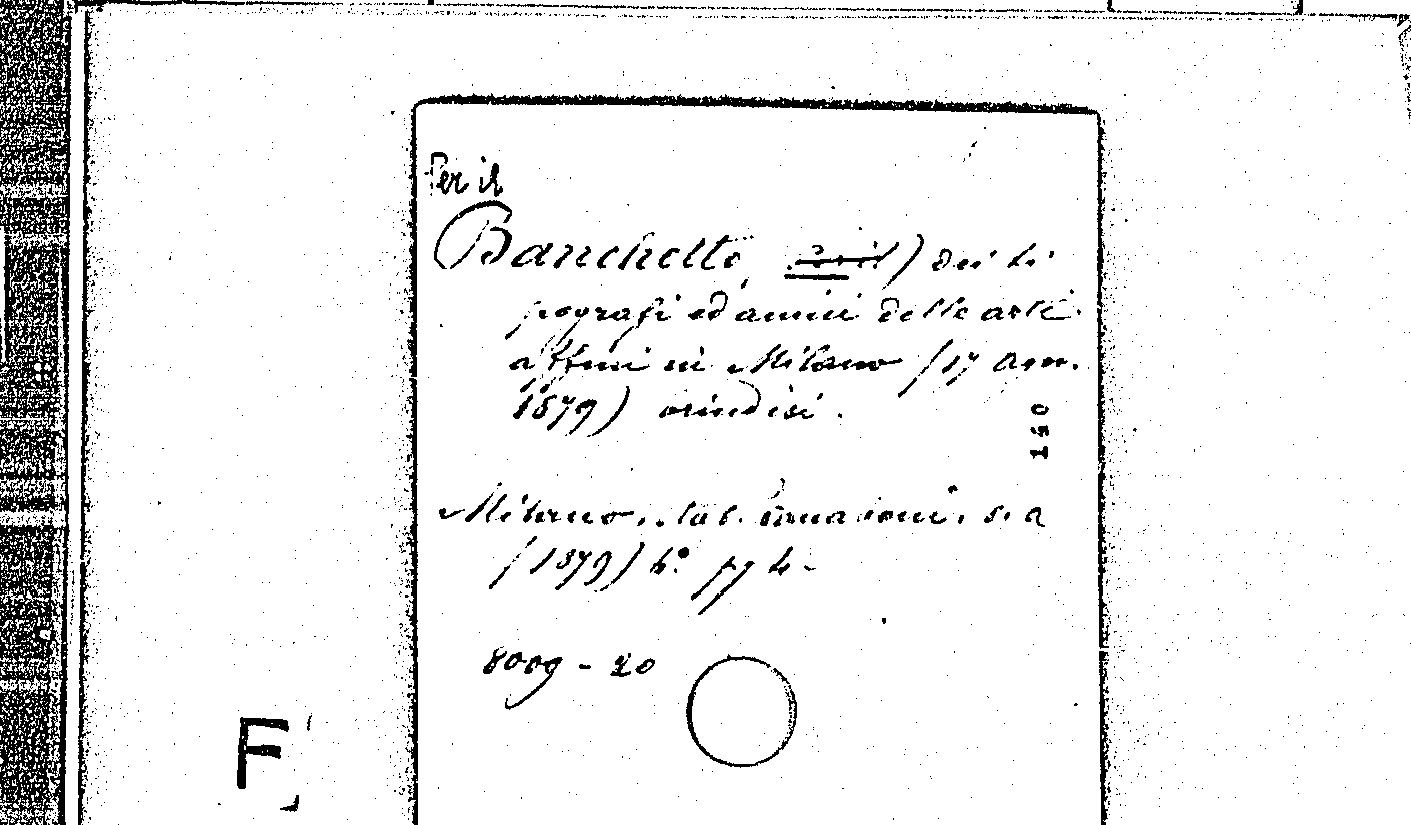 Per il
Banchetto dei ti
pografi ed amici delle arti
affini in Milano (17 Agos.
1879) brindisi.
150
Milano, stab. Civelli, s. a
(1879) 4.° pg 4.
8009 - 20
F